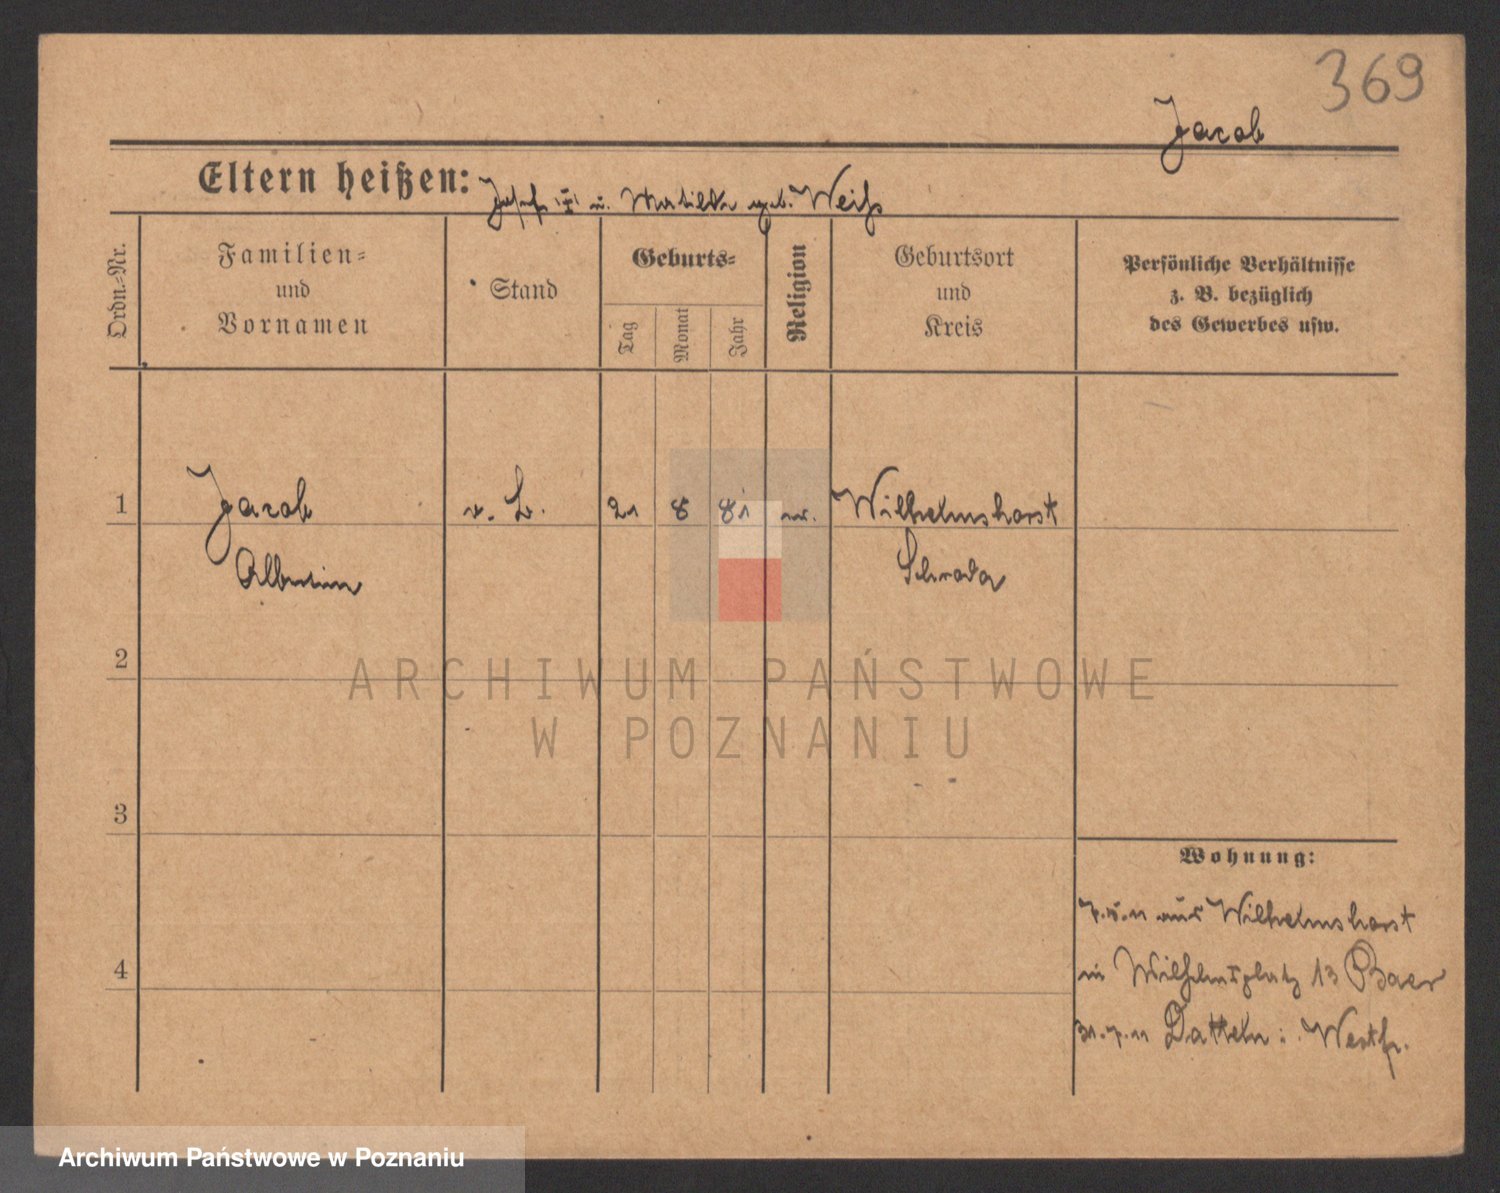 369
Jacob
Eltern heißen: Josef u. Matilde geb. Weiß
Ordn.-Nr.
Familien-
und
Vornamen
Stand
Geburts-
Tag
Monat
Jahr
Religion
Geburtsort
und
Kreis
Persönliche Verhältnisse
z. B. bezüglich
des Gewerbes usw.
1
Jacob
21
8
81
Wilhelmshorst
Albertine
Schroda
2
ARCHIWUM PAŃSTWOWE
W POZNANIU
3
Wohnung:
aus Wilhelmshorst
4
in Wilhelmsplatz 13 Baer
31.7.11 Datteln i. Westf.
Archiwum Państwowe w Poznaniu